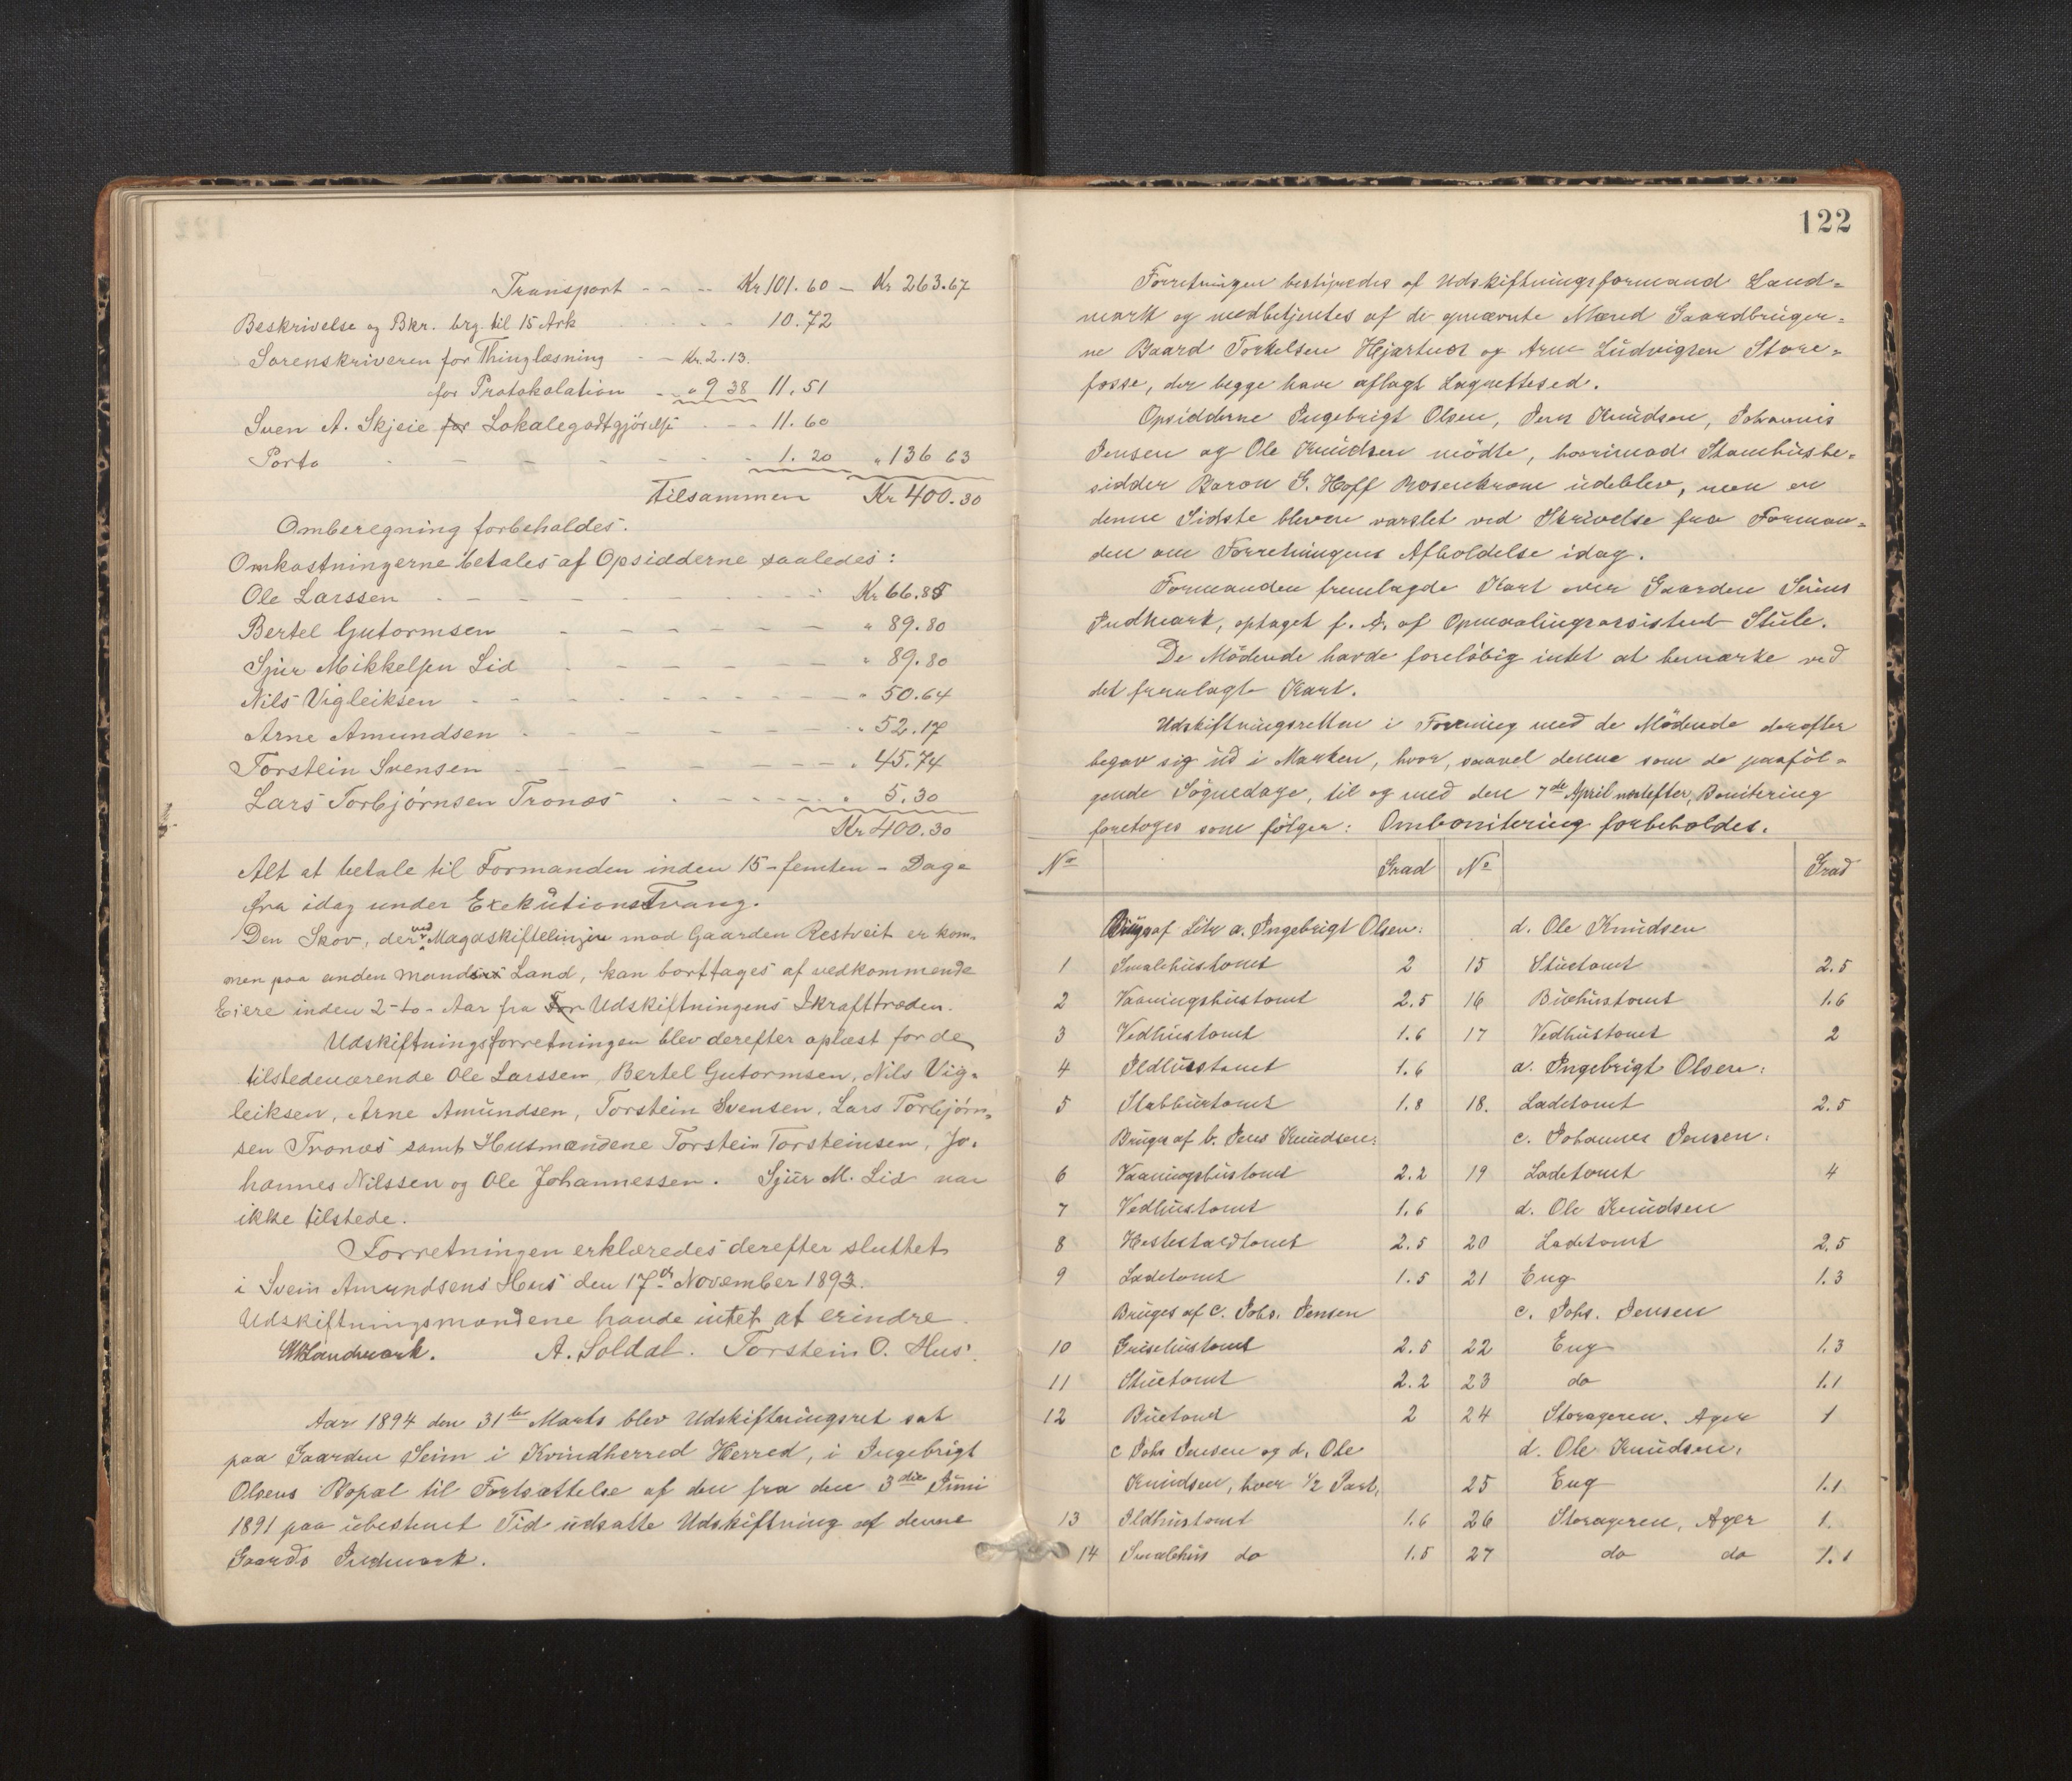 Transport - - - Kr 101.60 - Kr 263.67
Beskrivelse og Bkr. brg. til 15 Ark - - - 10.72
Sorenskriveren for Thinglæsning - - Kr. 2.13.
for Protokolation - - " 9 38 11.51
Sven A. Skjeie for Lokalegodtgjörelse - - - 11.60
Porto - - - - - - - 1.20 " 136 63
Tilsammen Kr 400.30
Omberegning forbeholdes.
Omkostningerne betales af Opsidderne saaledes:
Ole Larssen - - - - - - - Kr 66.85
Bertel Gutormsen - - - - - - " 89.80
Sjur Mikkelsen Lid - - - - - " 89.80
Nils Vigleiksen - - - - - - - " 50.64
Arne Amundsen - - - - - - " 52.17
Torstein Svensen - - - - - - " 45.74
Lars Torbjørnsen Tronæs - - - - - " 5.30
Kr 400.30
Alt at betale til Formanden inden 15 - femten - Dage
fra idag under ExekutionsTvang.
Den Skov, der ved Magaskiftelinjen mod Gaarden Restveit er kom-
men paa anden mands Land, kan borttages af vedkommende
Eiere inden 2 - to - Aar fra For Udskiftningens Ikrafttræden.
Udskiftningsforretningen blev derefter oplæst for de
tilstedeværende Ole Larssen, Bertel Gutormsen, Nils Vig-
leiksen, Arne Amundsen, Torstein Svensen, Lars Torbjørn-
sen Tronæs samt Husmændene Torstein Torsteinsen, Jo-
hannes Nilssen og Ole Johannessen. Sjur M. Lid var
ikke tilstede.
Forretningen erklæredes derefter sluttet
i Svein Amundsens Hus den 17de November 1893.
Udskiftningsmændene havde intet at erindre.
Landmark. A. Soldal. Torstein O. Hus.
Aar 1894 den 31te Marts blev Udskiftningsret sat
paa Gaarden Seim i Kvindherred Herred, i Ingebrigt
Olsens Bopæl til Fortsættelse af den fra den 3die Juni
1891 paa ubestemt Tid udsatte Udskiftning af denne
Gaards Indmark.
122
Forretningen bestyredes af Udskiftningsformand Land-
mark og medbetjentes af de opnævnte Mænd Gaardbruger-
ne Baard Torkelsen Hjartnes og Arne Ludvigsen Store-
fosse, der begge have aflagt Lagrettesed.
Opsidderne Ingebrigt Olsen, Jens Knudsen, Johannes
Jensen og Ole Knudsen mödte, hvorimod Stamhusbe-
sidder Baron G. Hoff Rosenkrone udeblev, men er
denne Sidste bleven varslet ved Skrivelse fra Forman-
den om Forretningens Afholdelse idag.
Formanden fremlagde Kart over Gaarden Seims
Indmark, optaget f. A. af Opmaalingsassistent Stule.
De Mödende havde foreløbig intet at bemærke ved
det fremlagte Kart.
Udskiftningsretten i Forening med de Mödende derefter
begav sig ud i Marken, hvor, saavel denne som de paaföl-
gende Sögnedage, til og med den 7de April næstefter, Bonitering
foretoges som følger: Ombonitering forbeholdes.
No Grad No Grad
Bruges af Litr a. Ingebrigt Olsen: d. Ole Knudsen
1 Smalehustomt 2 15 Stuetomt 2.5
2 Vaaningshustomt 2.5 16 Buehustomt 1.6
3 Vedhustomt 1.6 17 Vedhustomt 2
4 Ildhustomt 1.6 a. Ingebrigt Olsen:
5 Stabburtomt 1.8 18. Ladetomt 2.5
Bruges af b. Jens Knudsen: c. Johannes Jensen:
6 Vaaningshustomt 2.2 19 Ladetomt 4
7 Vedhustomt 1.6 d. Ole Knudsen
8 Hestestaldtomt 2.5 20 Ladetomt 2.5
9 Ladetomt 1.5 21 Eng 1.3
Bruges af c. Johs. Jensen c. Johs. Jensen
10 Grisehustomt 2.5 22 Eng 1.3
11 Stuetomt 2.2 23 do 1.1
12 Buetomt 2 24 Storageren. Ager 1
c Johs Jensen og d. Ole d. Ole Knudsen.
Knudsen, hver 1/2 Part. 25 Eng 1.1
13 Ildhustomt 1.6 26 Storageren, Ager 1.
14 Smalehus do 1.5 27 do do 1.1